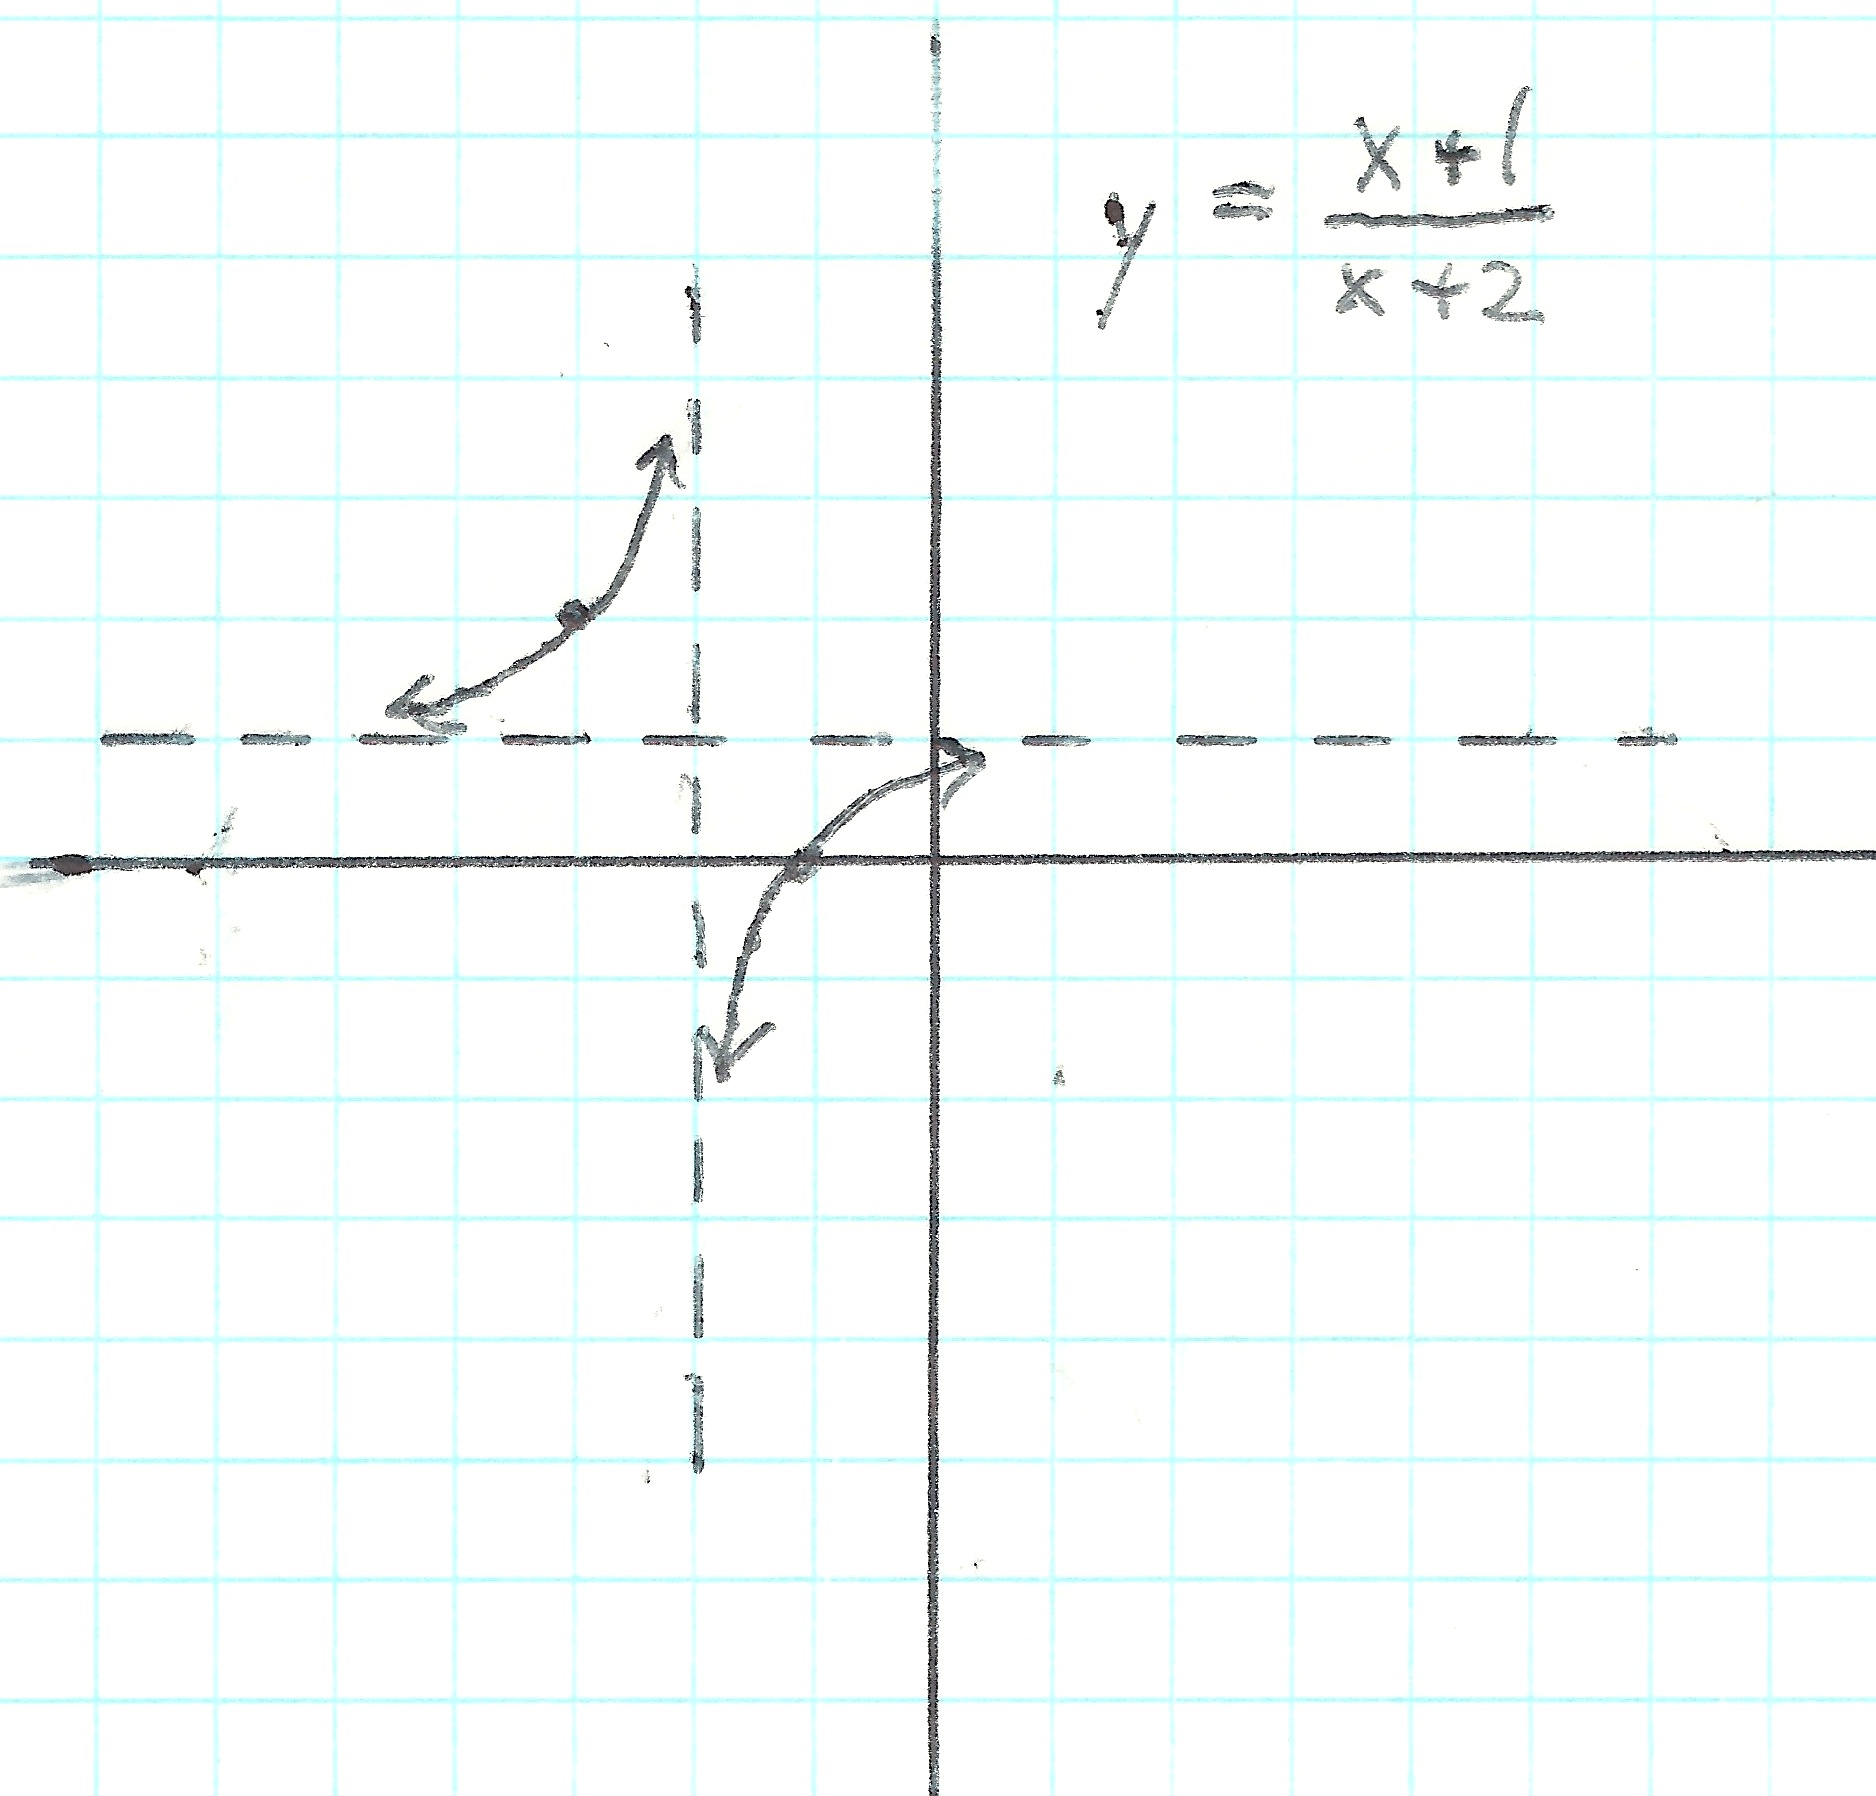 y = x+1
x+2